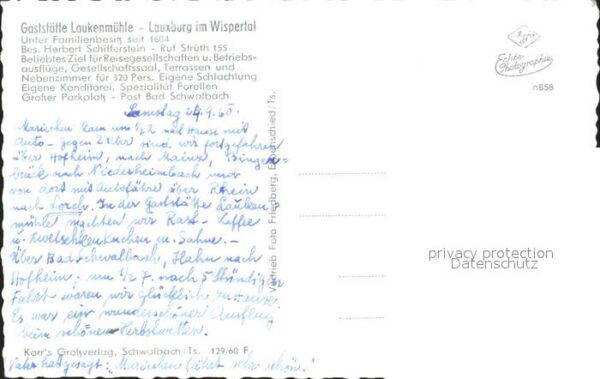 Gaststätte Laukenmühle - Lauxburg im Wispertal
Unter Familienbesitz seit 1604
Bes. Herbert Schifferstein - Ruf Strüth 155
Beliebtes Ziel für Reisegesellschaften u. Betriebs-
ausflüge, Gesellschaftssaal, Terrassen und
Nebenzimmer für 320 Pers. Eigene Schlachtung
Eigene Konditorei. Spezialität Forellen
Großer Parkplatz - Post Bad Schwalbach
Samstag 24.9.60.
Mariechen kam um 1/2 2 nach Hause mit
Auto - gegen 2 Uhr sind wir fortgefahren
über Hofheim, nach Mainz, Bingen=
brück nach Niederheimbach und
von dort mit Autofähre über Rhein
nach Lorch. In der Gaststätte Lauken=
mühle machten wir Rast - Kaffee
u. Zwetschkenkuchen m. Sahne. -
Über Bad Schwalbach, Hahn nach
Hofheim; um 1/2 7. nach 5 Stündiger
Fahrt waren wir Glücklich zu Hause.
Es war ein wunderschöner Ausflug
beim schönen Herbstwetter.
Korr's Großverlag, Schwalbach/Ts. 129/60 F
Vater hat gesagt: "Mariechen fährt sehr schön."
Vertrieb Foto Frieglberg, /Ts.
Echte
Photographie
n658
privacy protection
Datenschutz